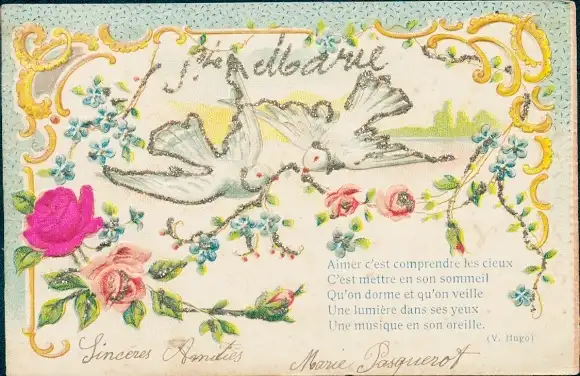 Ste Marie
Aimer c'est comprendre les cieux
C'est mettre en son sommeil
Qu'on dorme et qu'on veille
Une lumière dans ses yeux
Une musique en son oreille.
(V. Hugo)
Sincères Amitiés
Marie Pasquerot